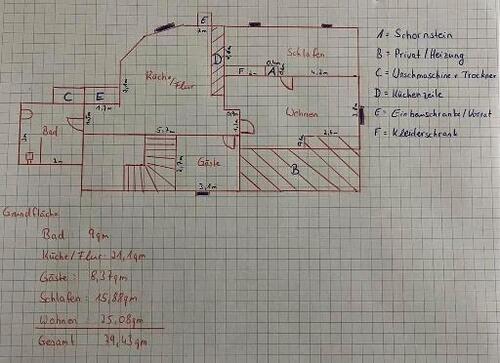 E
2m
Schlafen
1 = Schornstein
B = Privat/Heizung
C = Waschmaschine + Trockner
D = Küchenzeile
E = Einbauschränke/Vorrat
F = Kleiderschrank
D
Küche/Flur
F
2m
A
4,2m
C
E
1,7m
Wohnen
Bad
5,7m
2,6m
2m
2,7m
Gäste
B
3,1m
Grundfläche
Bad : 9qm
Küche/Flur: 21,1qm
Gäste : 8,37qm
Schlafen : 15,88qm
Wohnen : 25,08qm
Gesamt : 79,43qm